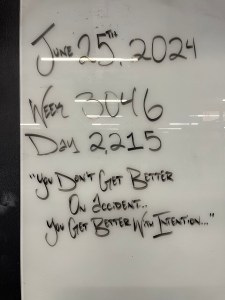 June 25th, 2024
Week 3046
Day 2,215
"You Don't Get Better
On Accident..
You Get Better With Intention..."